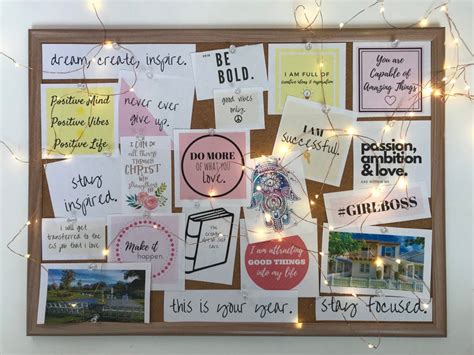 dream, create, inspire.
BE
BOLD.
I AM FULL OF
creative ideas & inspiration
You are
Capable of
Amazing Things
Positive Mind
Positive Vibes
Positive Life
never ever
give up.
good vibes
only.
I AM
successful.
passion,
ambition
& love.
I CAN DO
all things
THROUGH
CHRIST
DO MORE
OF WHAT YOU
LOVE.
stay
inspired.
#GIRLBOSS
I will get
transferred to the
job that I want
Make it
happen.
I am attracting
GOOD THINGS
into my life
this is your year.
stay focused.